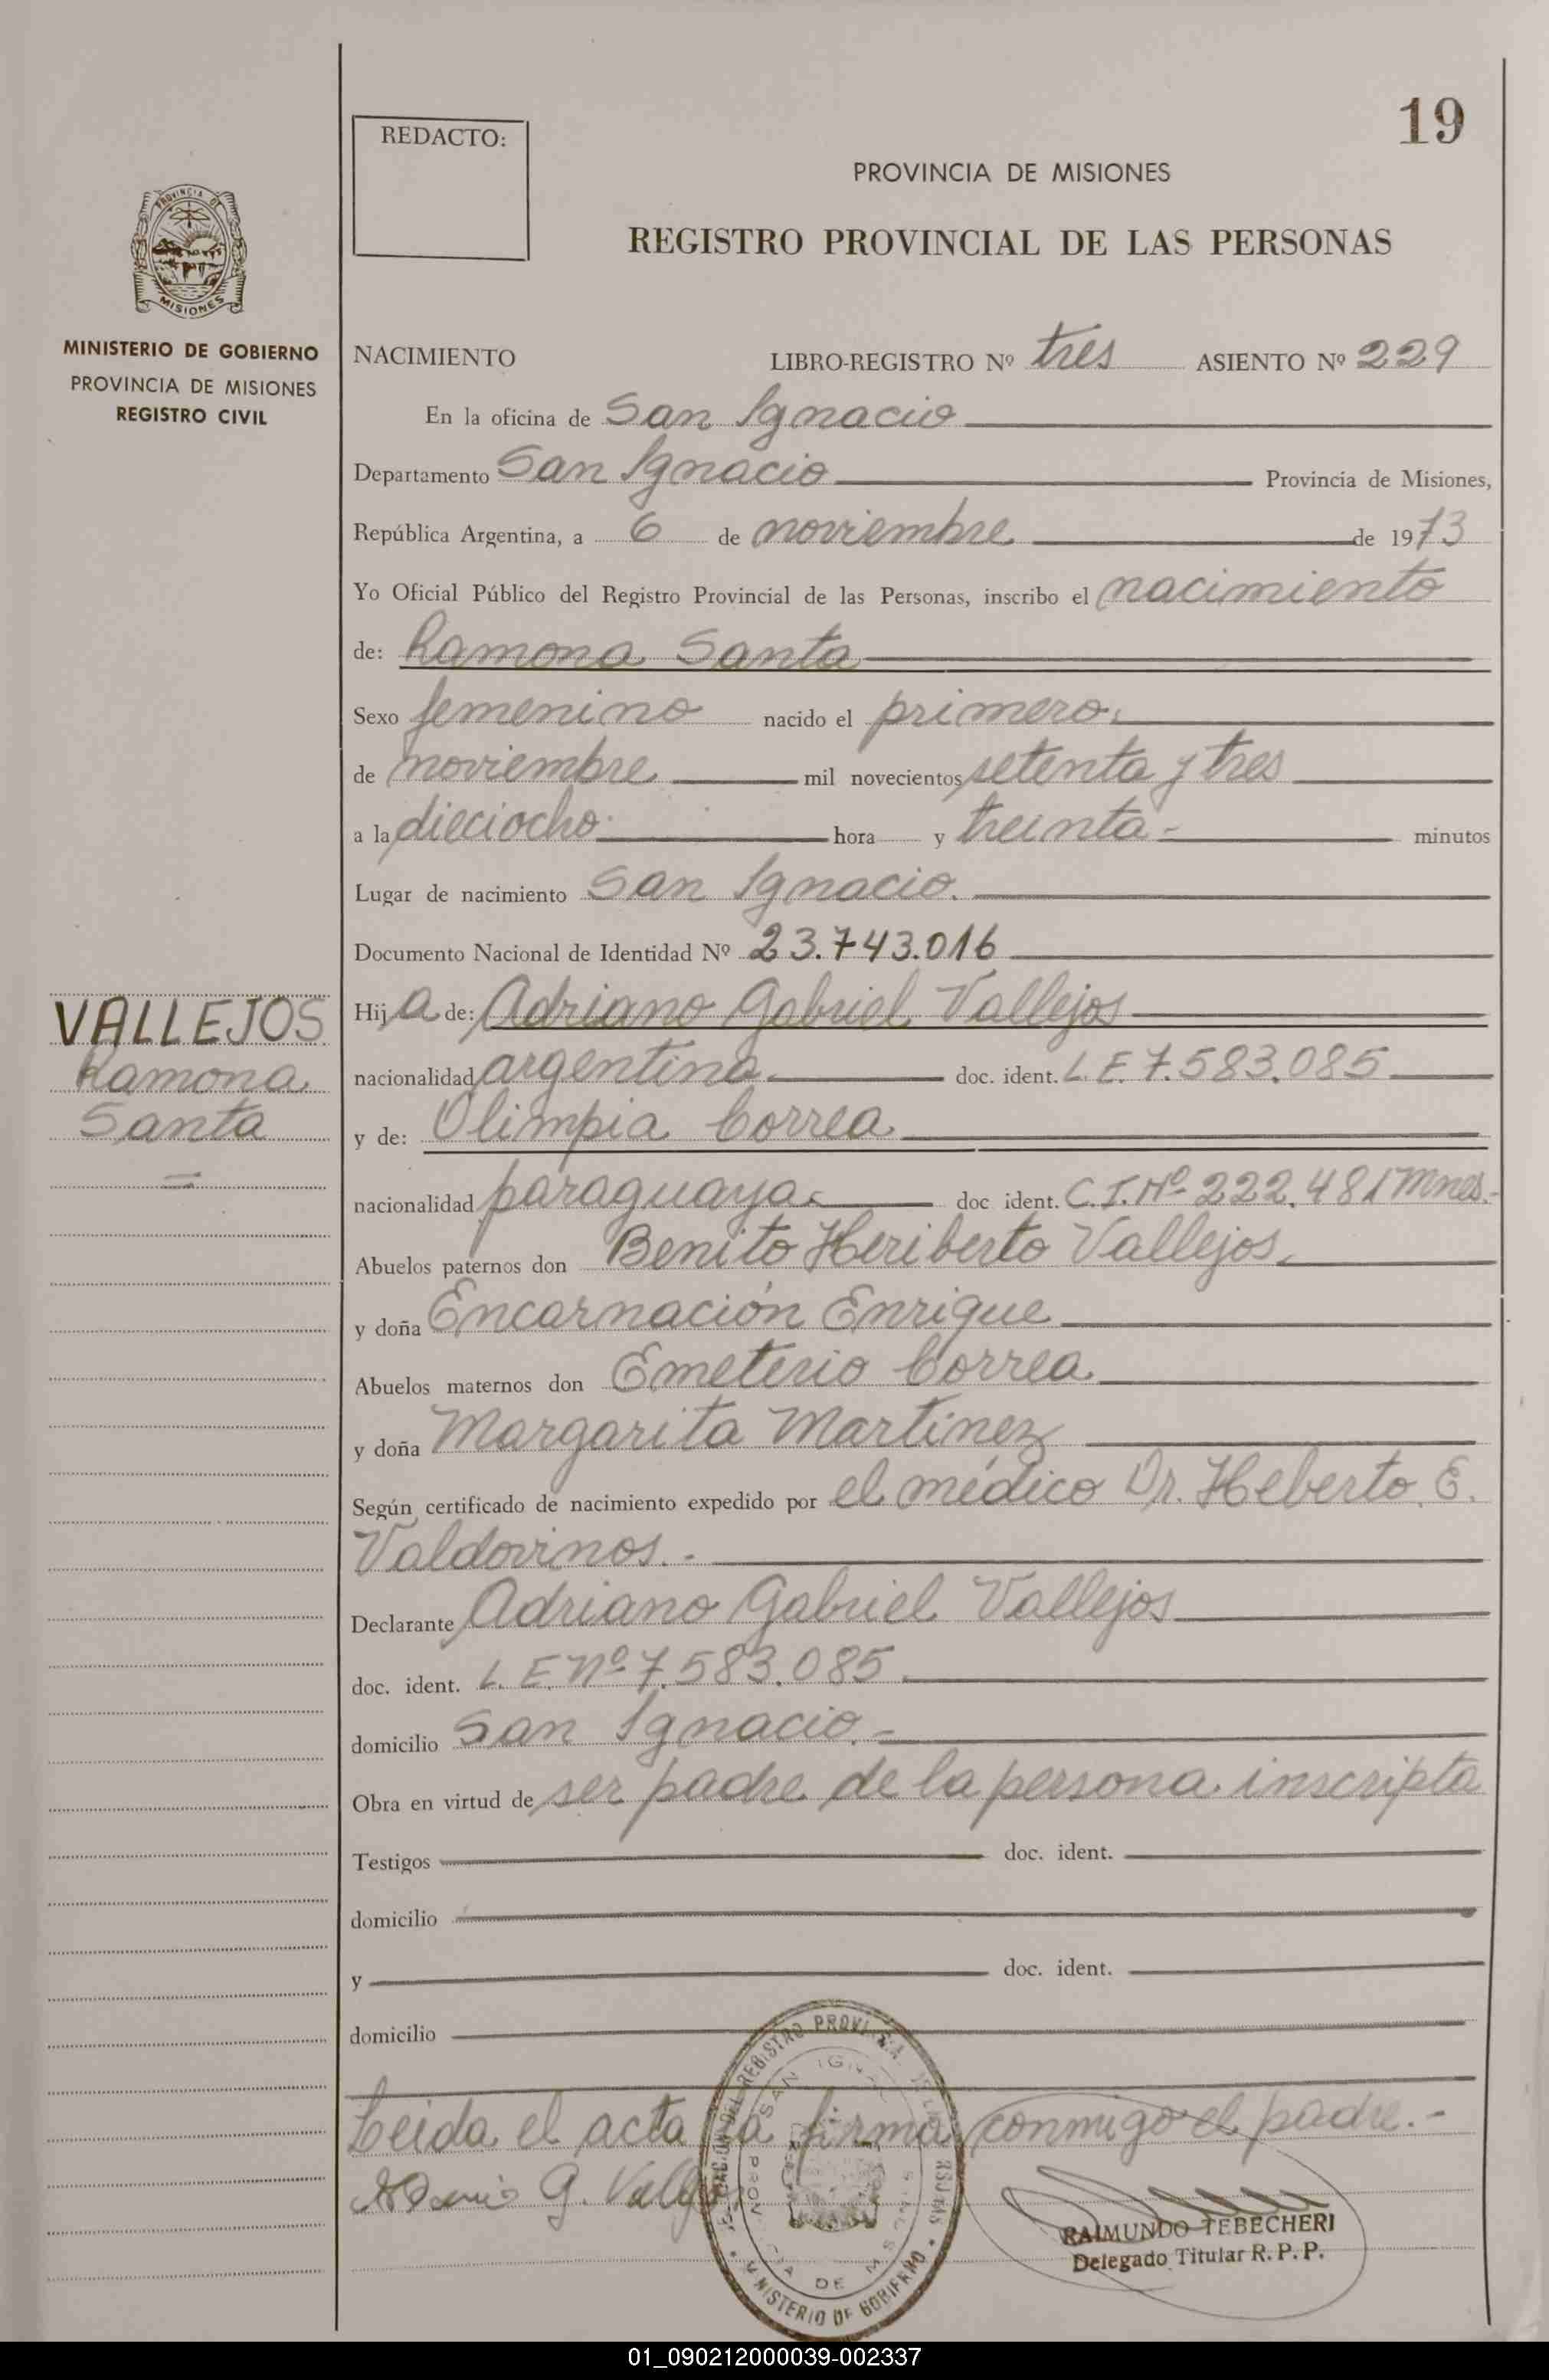 19
REDACTO:
PROVINCIA DE MISIONES
REGISTRO PROVINCIAL DE LAS PERSONAS
PROVINCIA DE
MISIONES
MINISTERIO DE GOBIERNO
PROVINCIA DE MISIONES
REGISTRO CIVIL
NACIMIENTO LIBRO-REGISTRO Nº tres ASIENTO Nº 229
En la oficina de San Ignacio
Departamento San Ignacio Provincia de Misiones,
República Argentina, a 6 de noviembre de 1973
Yo Oficial Público del Registro Provincial de las Personas, inscribo el nacimiento
de: Ramona Santa
Sexo femenino nacido el primero.
de noviembre mil novecientos setenta y tres
a la dieciocho hora y treinta - minutos
Lugar de nacimiento San Ignacio.
Documento Nacional de Identidad Nº 23.743.016
VALLEJOS
Ramona
Santa
=
Hij a de: Adriano Gabriel Vallejos
nacionalidad argentina doc. ident. L.E. 7.583.085
y de: Olimpia Correa
nacionalidad paraguaya doc ident. C.I.Nº 222.481 Mnes.-
Abuelos paternos don Benito Heriberto Vallejos
y doña Encarnación Enrique
Abuelos maternos don Emeterio Correa
y doña Margarita Martinez
Según certificado de nacimiento expedido por el médico Dr. Heberto E.
Valdovinos.-
Declarante Adriano Gabriel Vallejos
doc. ident. L.E. nº 7.583.085
domicilio San Ignacio.-
Obra en virtud de ser padre de la persona inscripta
Testigos doc. ident.
domicilio
y doc. ident.
domicilio
Leida el acta la firma conmigo el padre.-
G. Vallejos
RAIMUNDO TEBECHERI
Delegado Titular R. P. P.
MINISTERIO DE GOBIERNO
01_090212000039-002337